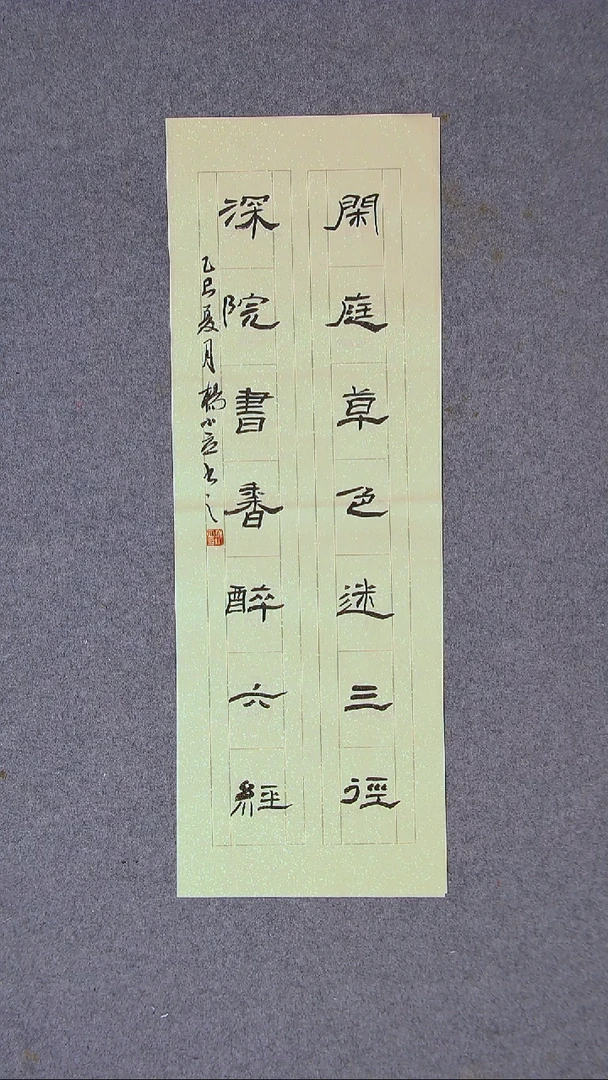 閑庭草色迷三徑
深院書香醉六經
乙巳夏月楊小彦书之